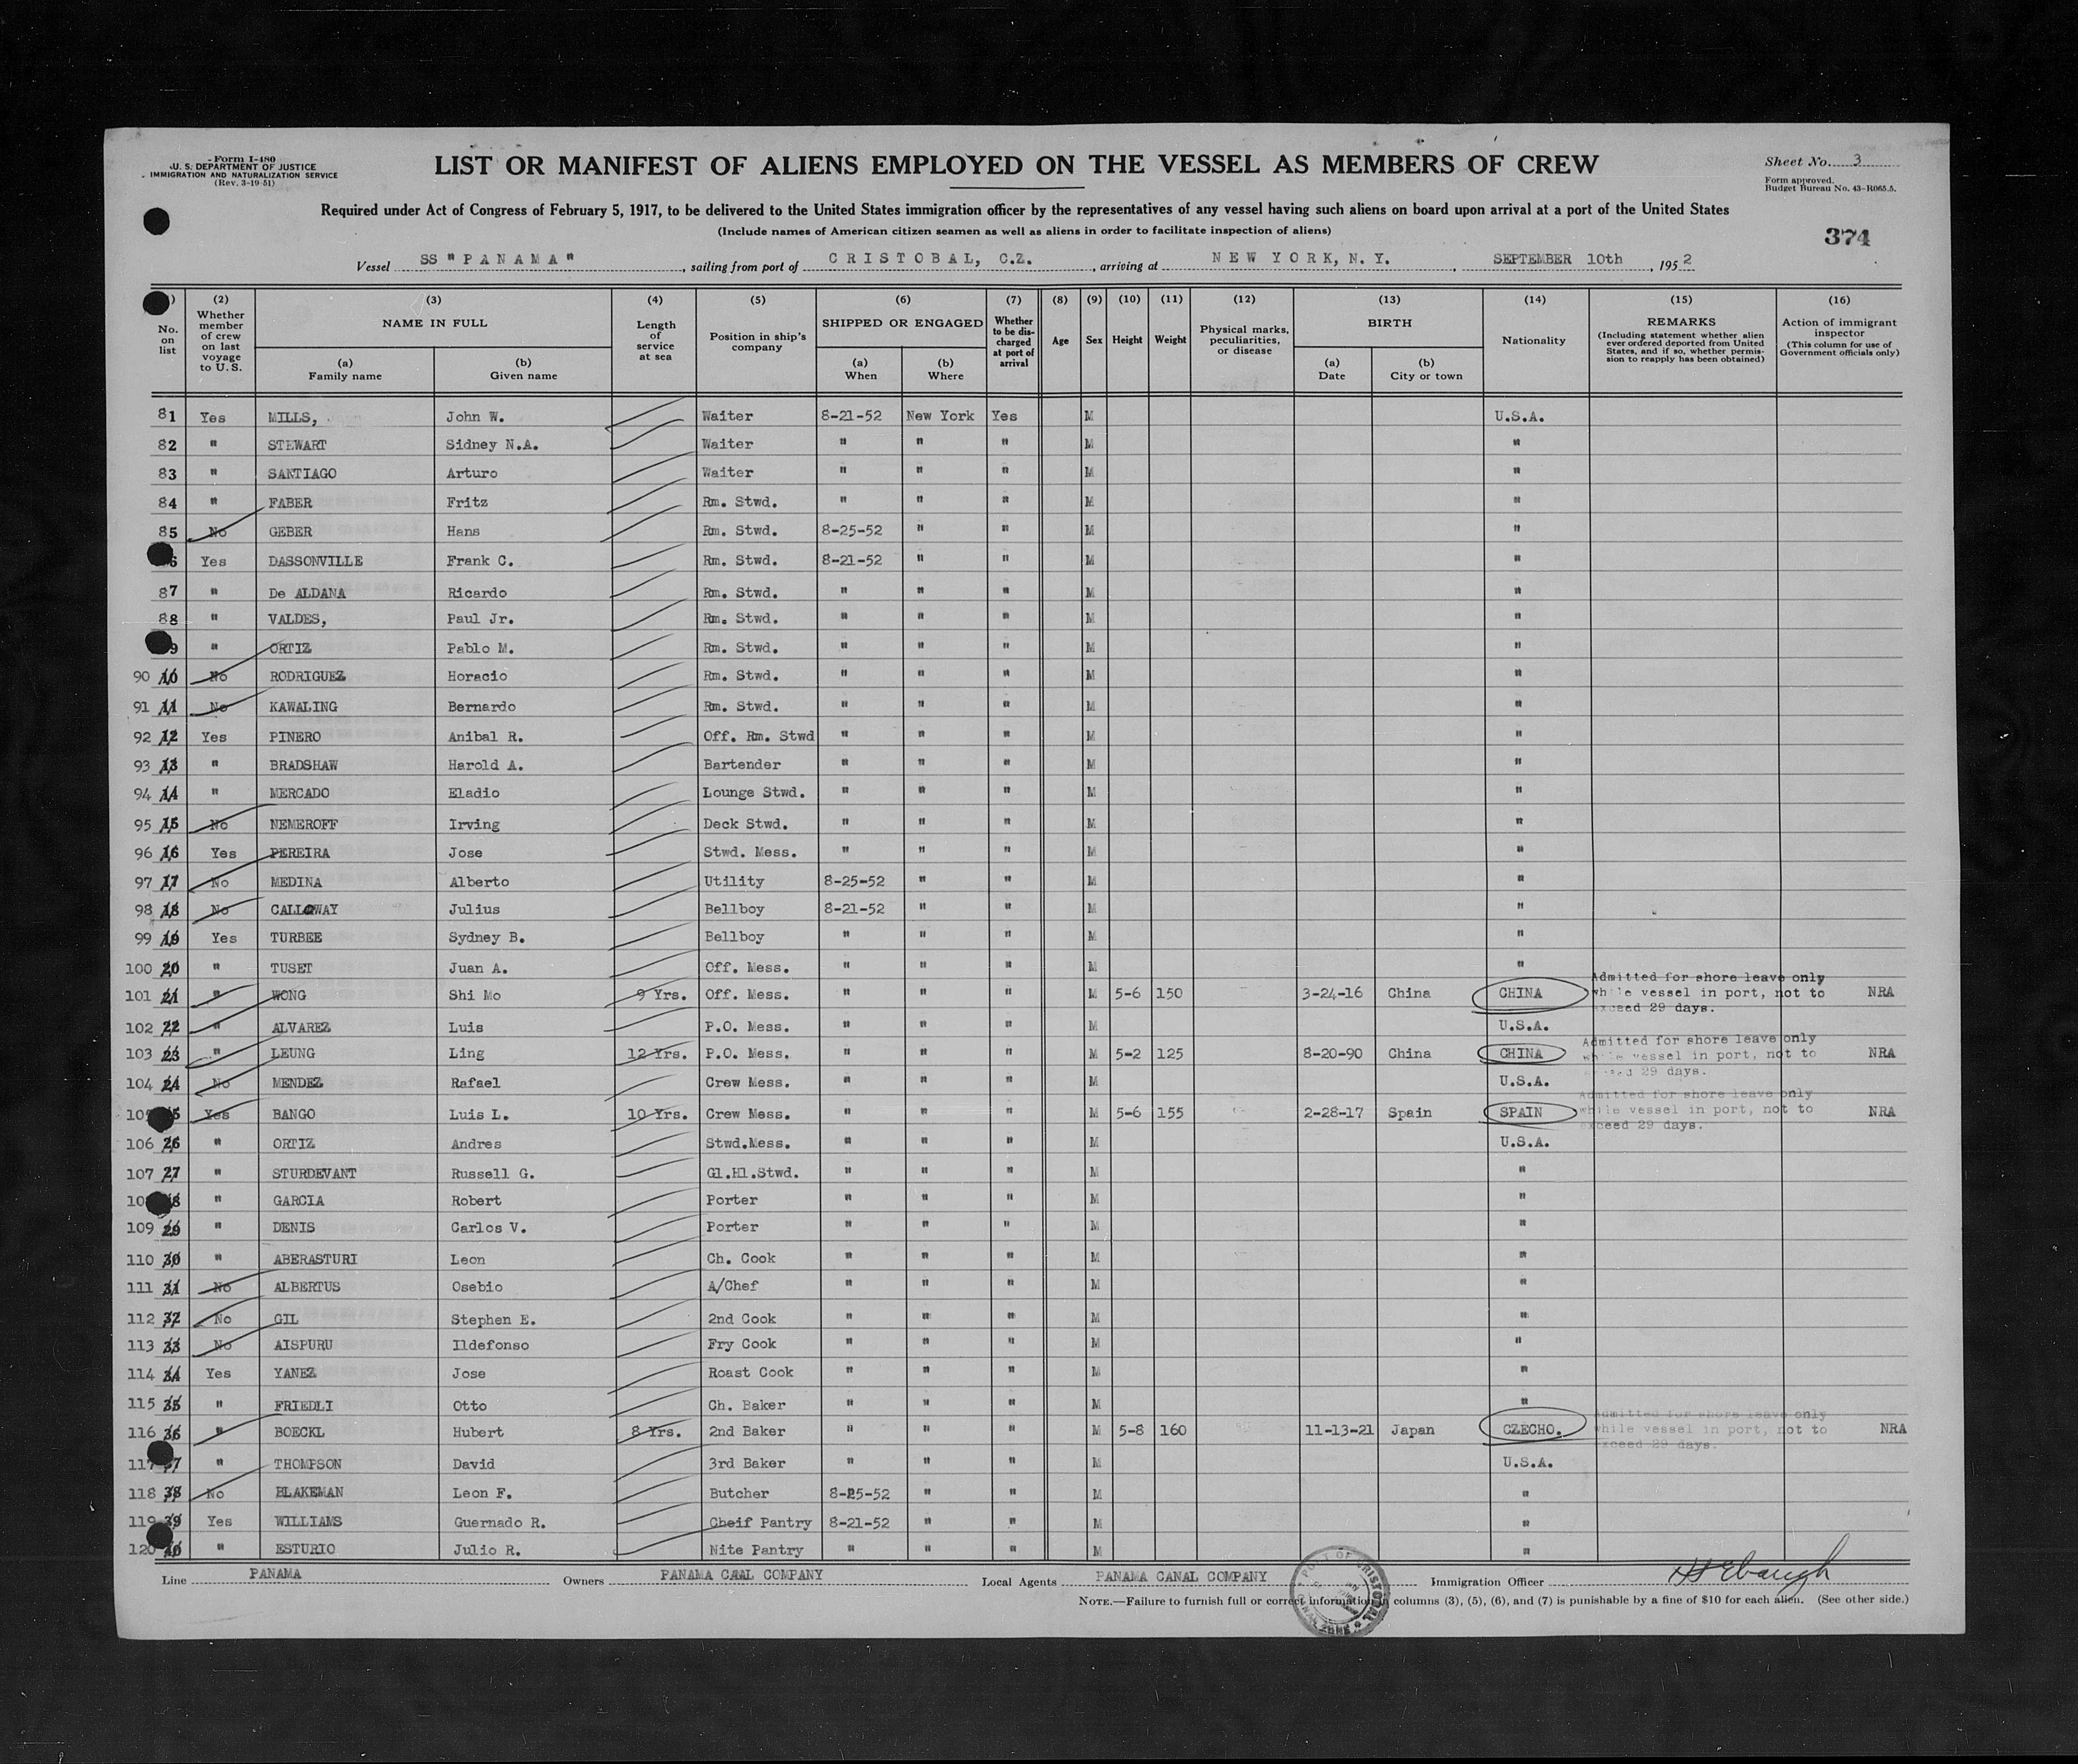 Form I-480
U. S. DEPARTMENT OF JUSTICE
IMMIGRATION AND NATURALIZATION SERVICE
(Rev. 3-19-51)
LIST OR MANIFEST OF ALIENS EMPLOYED ON THE VESSEL AS MEMBERS OF CREW
Sheet No. 3
Form approved.
Budget Bureau No. 43-R065.5.
Required under Act of Congress of February 5, 1917, to be delivered to the United States immigration officer by the representatives of any vessel having such aliens on board upon arrival at a port of the United States
(Include names of American citizen seamen as well as aliens in order to facilitate inspection of aliens)
374
Vessel SS "PANAMA", sailing from port of CRISTOBAL, C.Z., arriving at NEW YORK, N.Y., SEPTEMBER 10th, 1952
(2) (3) (4) (5) (6) (7) (8) (9) (10) (11) (12) (13) (14) (15) (16)
No. on list
Whether member of crew on last voyage to U. S.
NAME IN FULL
(a) Family name
(b) Given name
Length of service at sea
Position in ship's company
SHIPPED OR ENGAGED
(a) When
(b) Where
Whether to be discharged at port of arrival
Age
Sex
Height
Weight
Physical marks, peculiarities, or disease
BIRTH
(a) Date
(b) City or town
Nationality
REMARKS
(Including statement whether alien ever ordered deported from United States, and if so, whether permission to reapply has been obtained)
Action of immigrant inspector
(This column for use of Government officials only)
81 Yes MILLS, John W. Waiter 8-21-52 New York Yes M U.S.A.
82 " STEWART Sidney N.A. Waiter " " " M "
83 " SANTIAGO Arturo Waiter " " " M "
84 " FABER Fritz Rm. Stwd. " " " M "
85 No GEBER Hans Rm. Stwd. 8-25-52 " " M "
6 Yes DASSONVILLE Frank C. Rm. Stwd. 8-21-52 " " M "
87 " De ALDANA Ricardo Rm. Stwd. " " " M "
88 " VALDES, Paul Jr. Rm. Stwd. " " " M "
9 " ORTIZ Pablo M. Rm. Stwd. " " " M "
90 10 No RODRIGUEZ Horacio Rm. Stwd. " " " M "
91 11 No KAWALING Bernardo Rm. Stwd. " " " M "
92 12 Yes PINERO Anibal R. Off. Rm. Stwd " " " M "
93 13 " BRADSHAW Harold A. Bartender " " " M "
94 14 " MERCADO Eladio Lounge Stwd. " " " M "
95 15 No NEMEROFF Irving Deck Stwd. " " " M "
96 16 Yes PEREIRA Jose Stwd. Mess. " " " M "
97 17 No MEDINA Alberto Utility 8-25-52 " " M "
98 18 No CALLOWAY Julius Bellboy 8-21-52 " " M "
99 19 Yes TURBEE Sydney B. Bellboy " " " M "
100 20 " TUSET Juan A. Off. Mess. " " " M "
101 21 " WONG Shi Mo 9 Yrs. Off. Mess. " " " M 5-6 150 3-24-16 China CHINA Admitted for shore leave only while vessel in port, not to exceed 29 days. NRA
102 22 " ALVAREZ Luis P.O. Mess. " " " M U.S.A.
103 23 " LEUNG Ling 12 Yrs. P.O. Mess. " " " M 5-2 125 8-20-90 China CHINA Admitted for shore leave only while vessel in port, not to exceed 29 days. NRA
104 24 No MENDEZ Rafael Crew Mess. " " " M U.S.A.
105 Yes BANGO Luis L. 10 Yrs. Crew Mess. " " " M 5-6 155 2-28-17 Spain SPAIN Admitted for shore leave only while vessel in port, not to exceed 29 days. NRA
106 26 " ORTIZ Andres Stwd.Mess. " " " M U.S.A.
107 27 " STURDEVANT Russell G. Gl.Hl.Stwd. " " " M "
10 8 " GARCIA Robert Porter " " " M "
109 29 " DENIS Carlos V. Porter " " " M "
110 30 " ABERASTURI Leon Ch. Cook " " " M "
111 31 No ALBERTUS Osebio A/Chef " " " M "
112 32 No GIL Stephen E. 2nd Cook " " " M "
113 33 No AISPURU Ildefonso Fry Cook " " " M "
114 34 Yes YANEZ Jose Roast Cook " " " M "
115 35 " FRIEDLI Otto Ch. Baker " " " M "
116 36 " BOECKL Hubert 8 Yrs. 2nd Baker " " " M 5-8 160 11-13-21 Japan CZECHO. Admitted for shore leave only while vessel in port, not to exceed 29 days. NRA
117 37 " THOMPSON David 3rd Baker " " " M U.S.A.
118 38 No BLAKEMAN Leon F. Butcher 8-25-52 " " M "
119 39 Yes WILLIAMS Guernado R. Cheif Pantry 8-21-52 " " M "
120 40 " ESTURIO Julio R. Nite Pantry " " " M "
Line PANAMA Owners PANAMA CAAL COMPANY Local Agents PANAMA CANAL COMPANY Immigration Officer
PORT OF CRISTOBAL
NOTE.—Failure to furnish full or correct information in columns (3), (5), (6), and (7) is punishable by a fine of $10 for each alien. (See other side.)